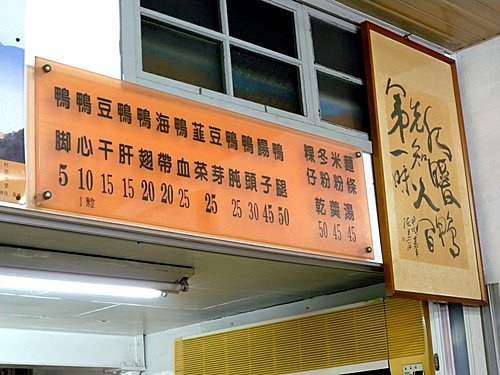 鴨腳 5
鴨心 10 1粒
豆干 15
鴨肝 15
鴨翅 20
海帶 20
鴨血 25
韮菜 25
豆芽
鴨肫 25
鴨頭 30
腸子 45
鴨腿 50
粿仔
冬粉
米粉
麵條
乾 50
羹 45
湯 45
暖鴨
知人
第一味